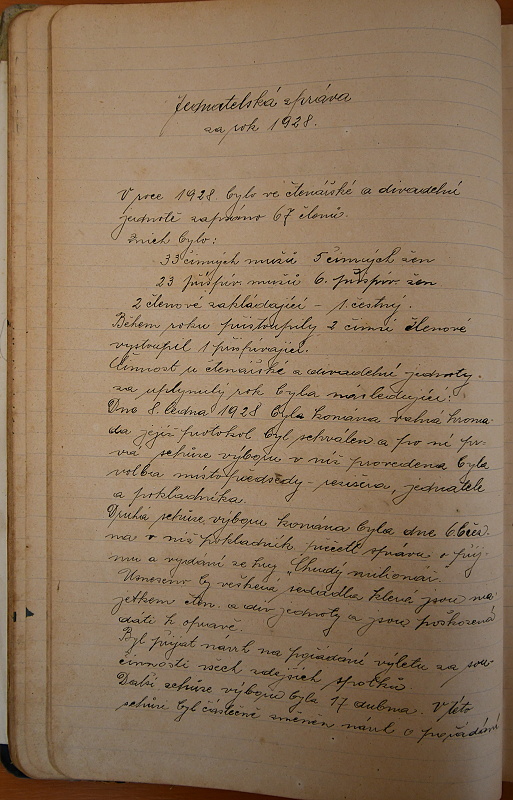 Jednatelská zpráva
za rok 1928.
V roce 1928 bylo ve čtenářské a divadelní
jednotě zapsáno 67 členů.
Z nich bylo:
33 činných mužů 5 činných žen
23 přispív. mužů 6. přispív. žen
2 členové zakládající – 1. čestný.
Během roku přistoupily 2 činní členové
vystoupil 1 přispívající.
Činnost v čtenářské a divadelní jednoty
za uplynulý rok byla následující:
Dne 8. ledna 1928 byla konána valná hroma-
da jejíž protokol byl schválen a po ní pr-
vá schůze výboru v níž provedena byla
volba místopředsedy – resiséra, jednatele
a pokladníka.
Druhá schůze výboru konána byla dne 6.
na v níž pokladník přečetl zprávu o příj-
mu a vydání ze hry „Chudý milionář.
Usneseno by veškerá sedadla která jsou ma-
jetkem čten. a div. jednoty a jsou poškozená
dáti k opravě.
Byl přijat návrh na pořádání výletu za sou-
činnosti všech zdejších spolků.
Další schůze výboru byla 17 dubna. V této
schůzi byl částečně změněn návrh o pořádání